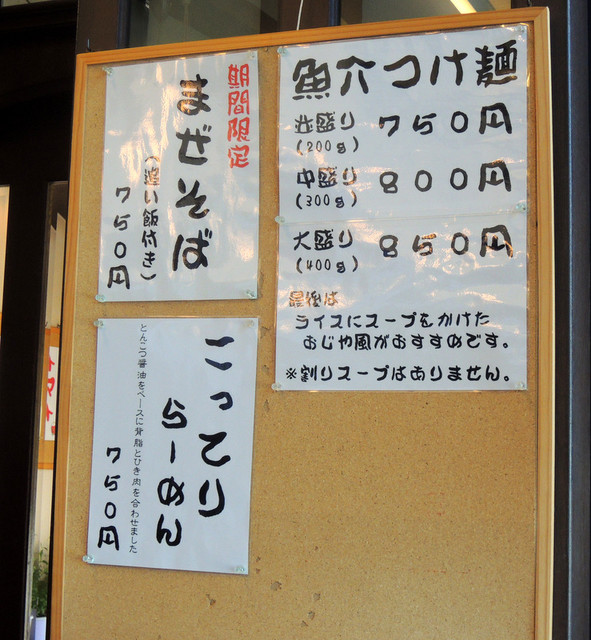 魚介つけ麺
並盛り 750円
(200g)
中盛り 800円
(300g)
大盛り 850円
(400g)
最後は
ライスにスープをかけた
おじや風がおすすめです。
※割りスープはありません。
期間限定
まぜそば
(追い飯付き)
750円
こってり
らーめん
とんこつ醤油をベースに背脂とひき肉を合わせました
750円